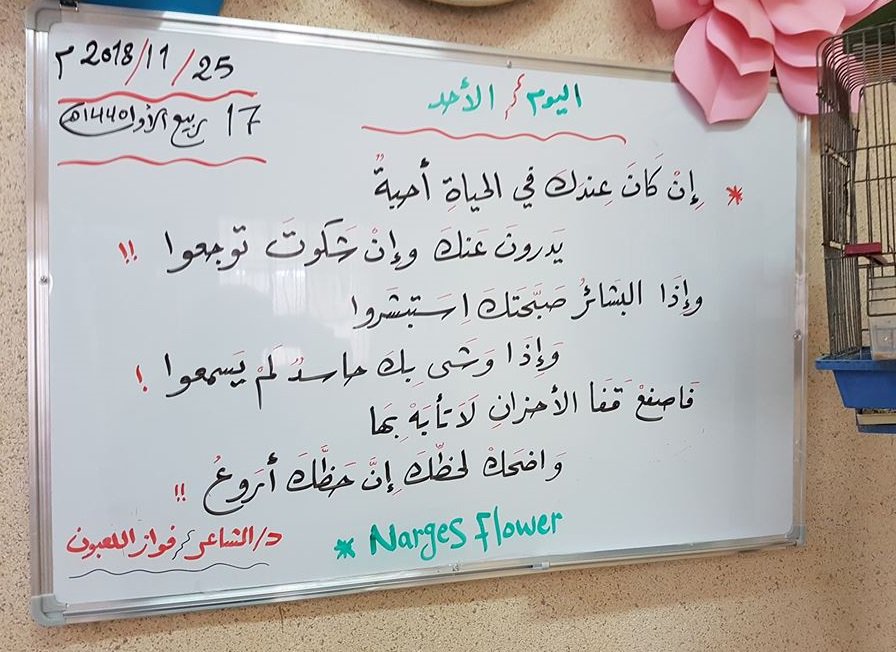 25/11/2018 م
17 ربيع الأول 1440هـ
اليوم / الأحد
* إِنْ كَانَ عِندَكَ في الحياةِ أحبةٌ
يَدرونَ عَنكَ وإنْ شَكوتَ توجعوا !!
وإذَا البَشائرُ صَبَّحَتكَ اِستبشَروا
وَإِذَا وَشَى بِك حاسدٌ لَمْ يَسمعوا !
فَاصفعْ قَفَا الأحزانِ لَا تأبَهْ بِهَا
وَاضحكْ لحظِّكَ إِنَّ حَظَّكَ أروعُ !!
د/الشاعر / فواز اللعبون
* Narges flower